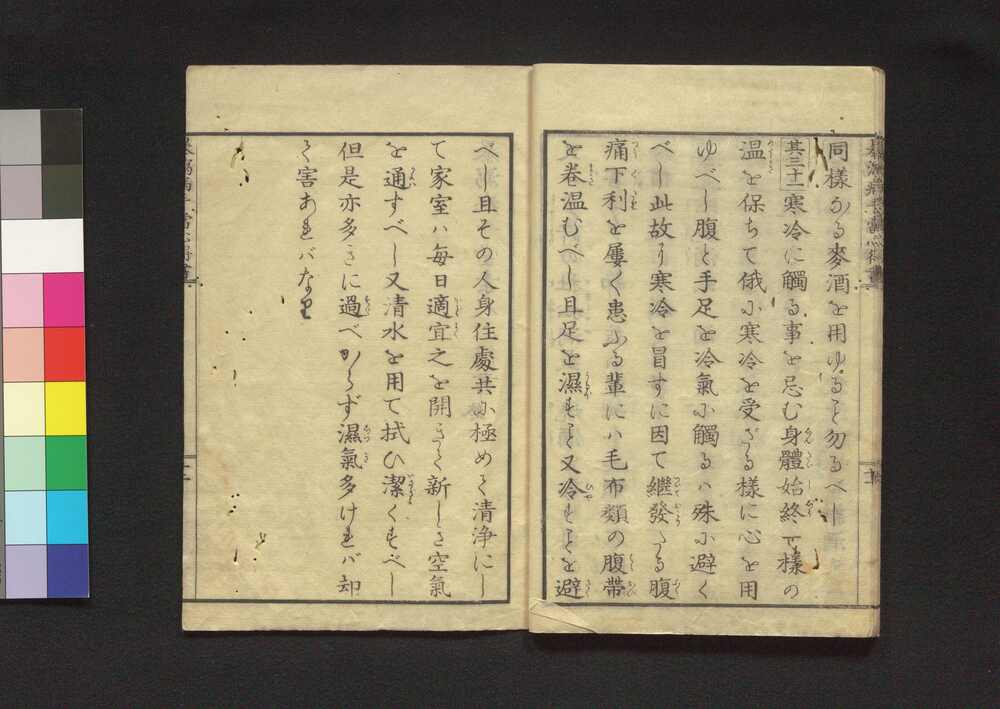 同樣なる麥酒を用ゆること勿るべし
其三十一寒冷に觸る事を忌む身體始終一樣の
温を保ちて俄に寒冷を受ざる樣に心を用
ゆべし腹と手足を冷氣に觸るハ殊に避く
べし此故に寒冷を冒すに因て繼發する腹
痛下利を屢く患ふる輩にハ毛布類の腹帶
を卷温むべし且足を濕すこと又冷すことを避
べし且その人身住處共に極めて清浄にし
て家室ハ毎日適宜之を開きて新しき空氣
を通すべし又清水を用て拭ひ潔くすべし
但是亦多きに過べからず濕氣多ければ却
て害あればなり